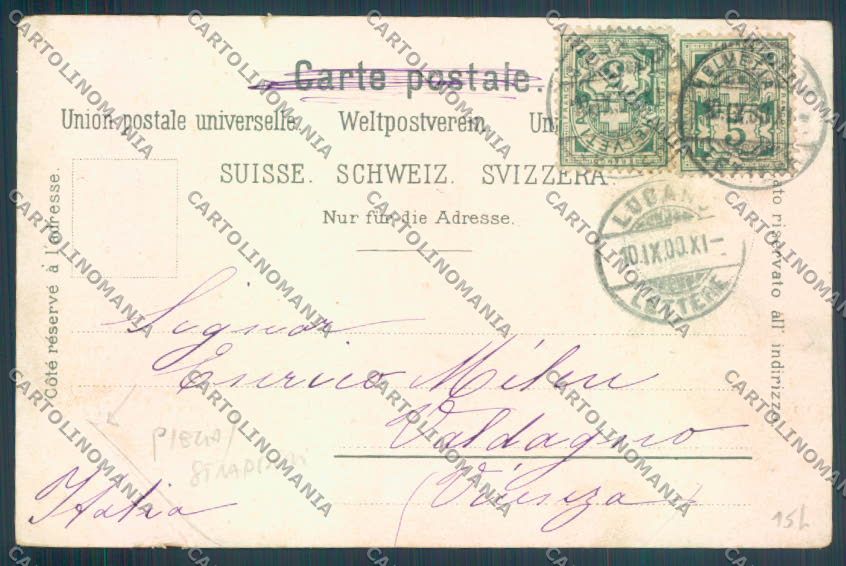 Carte postale.
Union postale universelle. Weltpostverein. Un
SUISSE. SCHWEIZ. SVIZZERA.
Nur für die Adresse.
Côté réservé à l'adresse.
ato riservato all' indirizzo.
HELVETIA
5
LUGANO
10.IX.00.XI-
LETTERE
Signor
Enrico Milen
Valdagno
(Vicenza)
Italia
PIEGA/
15L
CARTOLINOMANIA